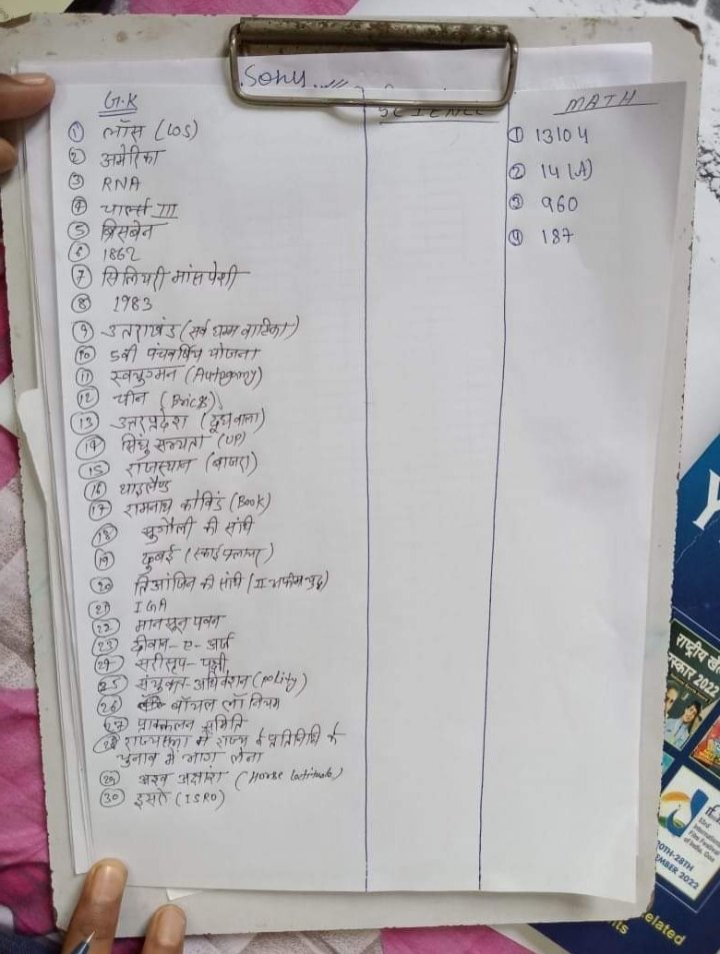 Sony
G.K
SCIENCE
MATH
① लॉस (LOS)
② अमेरिका
③ RNA
④ चार्ल्स III
⑤ ब्रिसबेन
⑥ 1862
⑦ सिलियरी मांसपेशी
⑧ 1983
⑨ उत्तराखंड (सर्व धम्म वाटिका)
⑩ 5वी पंचवर्षिय योजना
⑪ स्वयुग्मन (Autogamy)
⑫ चीन (Brics)
⑬ उत्तरप्रदेश (दूधवाला)
⑭ सिंधु सभ्यता (UP)
⑮ राजस्थान (बाजरा)
⑯ थाइलैण्ड
⑰ रामनाथ कोविंड (Book)
⑱ सुगौली की संधि
⑲ दुबई (स्काई)
⑳ तिआंजिन की संधि (II अफीम युद्ध)
㉑ IGA
㉒ मानसून पवन
㉓ दीवान-ए-अर्ज
㉔ सरीसृप-पक्षी
㉕ संयुक्त अधिवेशन (polity)
㉖ बॉयल लॉ नियम
㉗ प्राक्कलन समिति
㉘ राज्यसभा में राज्य के प्रतिनिधि के
चुनाव में भाग लेना
㉙ अश्व अक्षांश (Horse latitude)
㉚ इसरो (ISRO)
① 13104
② 14 (A)
③ 960
④ 187
राष्ट्रीय
2022
53rd
International
Film Festival
of India, Goa
20TH-28TH
2022
elated